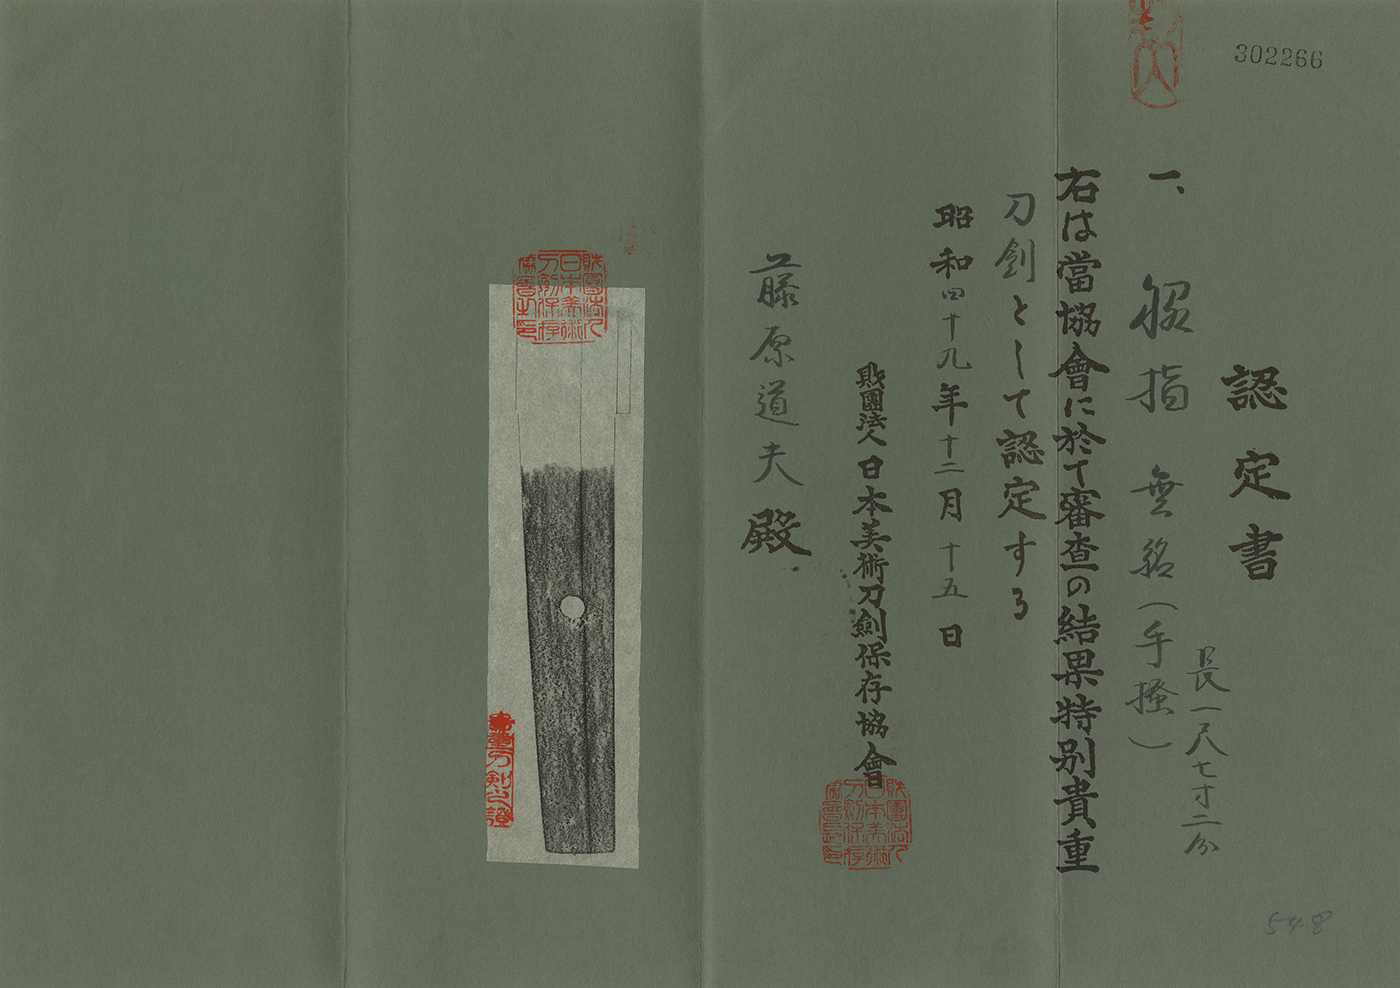 302266
認定書
一、脇指 無銘(手掻)
長一尺七寸二分
右は當協會に於て審査の結果特別貴重
刀劍として認定する
昭和四十九年十二月十五日
財團法人日本美術刀劍保存協會
財團法人日本美術刀劍保存協會長印
藤原道夫殿
財團法人日本美術刀劍保存協會之印
貴重刀劍之證
548